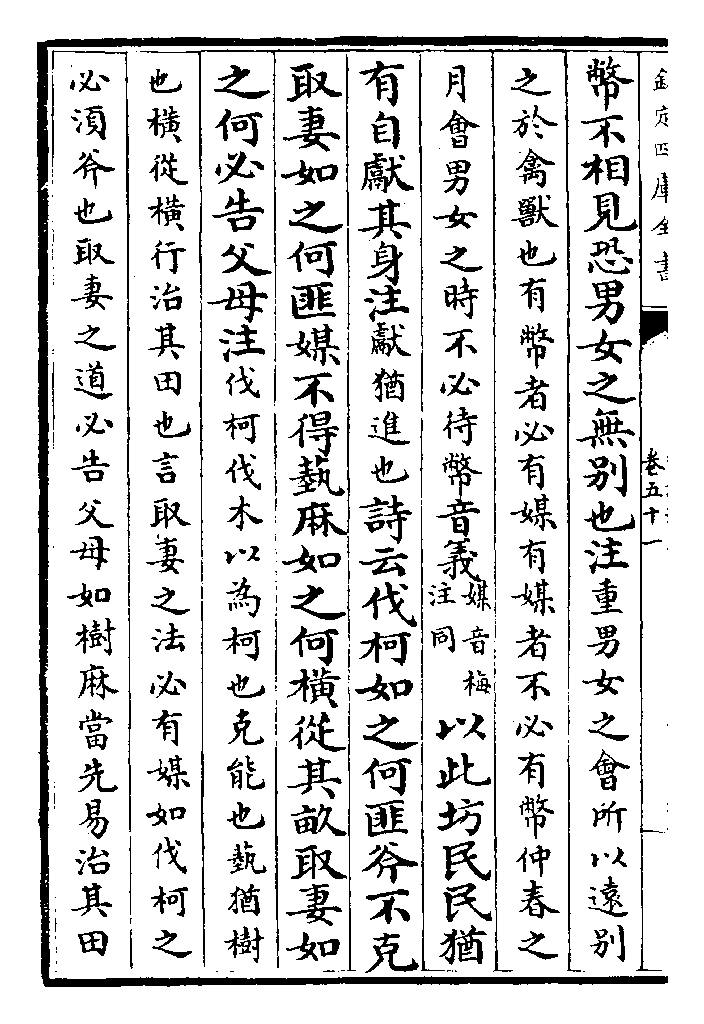 欽定四庫全書
卷五十一
幣不相見恐男女之無别也注重男女之會所以遠别
之於禽獸也有幣者必有媒有媒者不必有幣仲春之
月會男女之時不必待幣音義媒音梅注同以此坊民民猶
有自獻其身注獻猶進也詩云伐柯如之何匪斧不克
取妻如之何匪媒不得蓺麻如之何横從其畝取妻如
之何必告父母注伐柯伐木以為柯也克能也蓺猶樹
也横從横行治其田也言取妻之法必有媒如伐柯之
必湏斧也取妻之道必告父母如樹麻當先易治其田